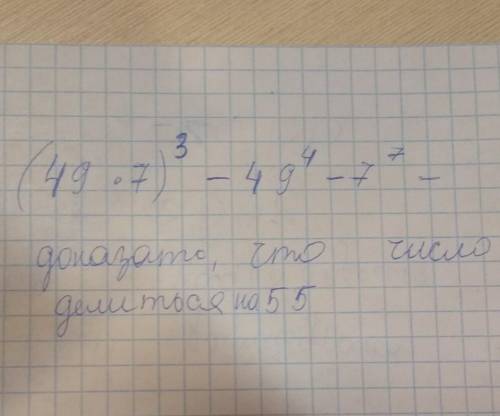 (49 · 7)³ – 49⁴ – 7⁷ –
доказать, что число
делиться на 55